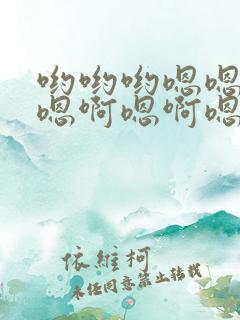 哟哟哟嗯嗯
嗯啊嗯啊嗯
依維柯
未经同意禁止转载